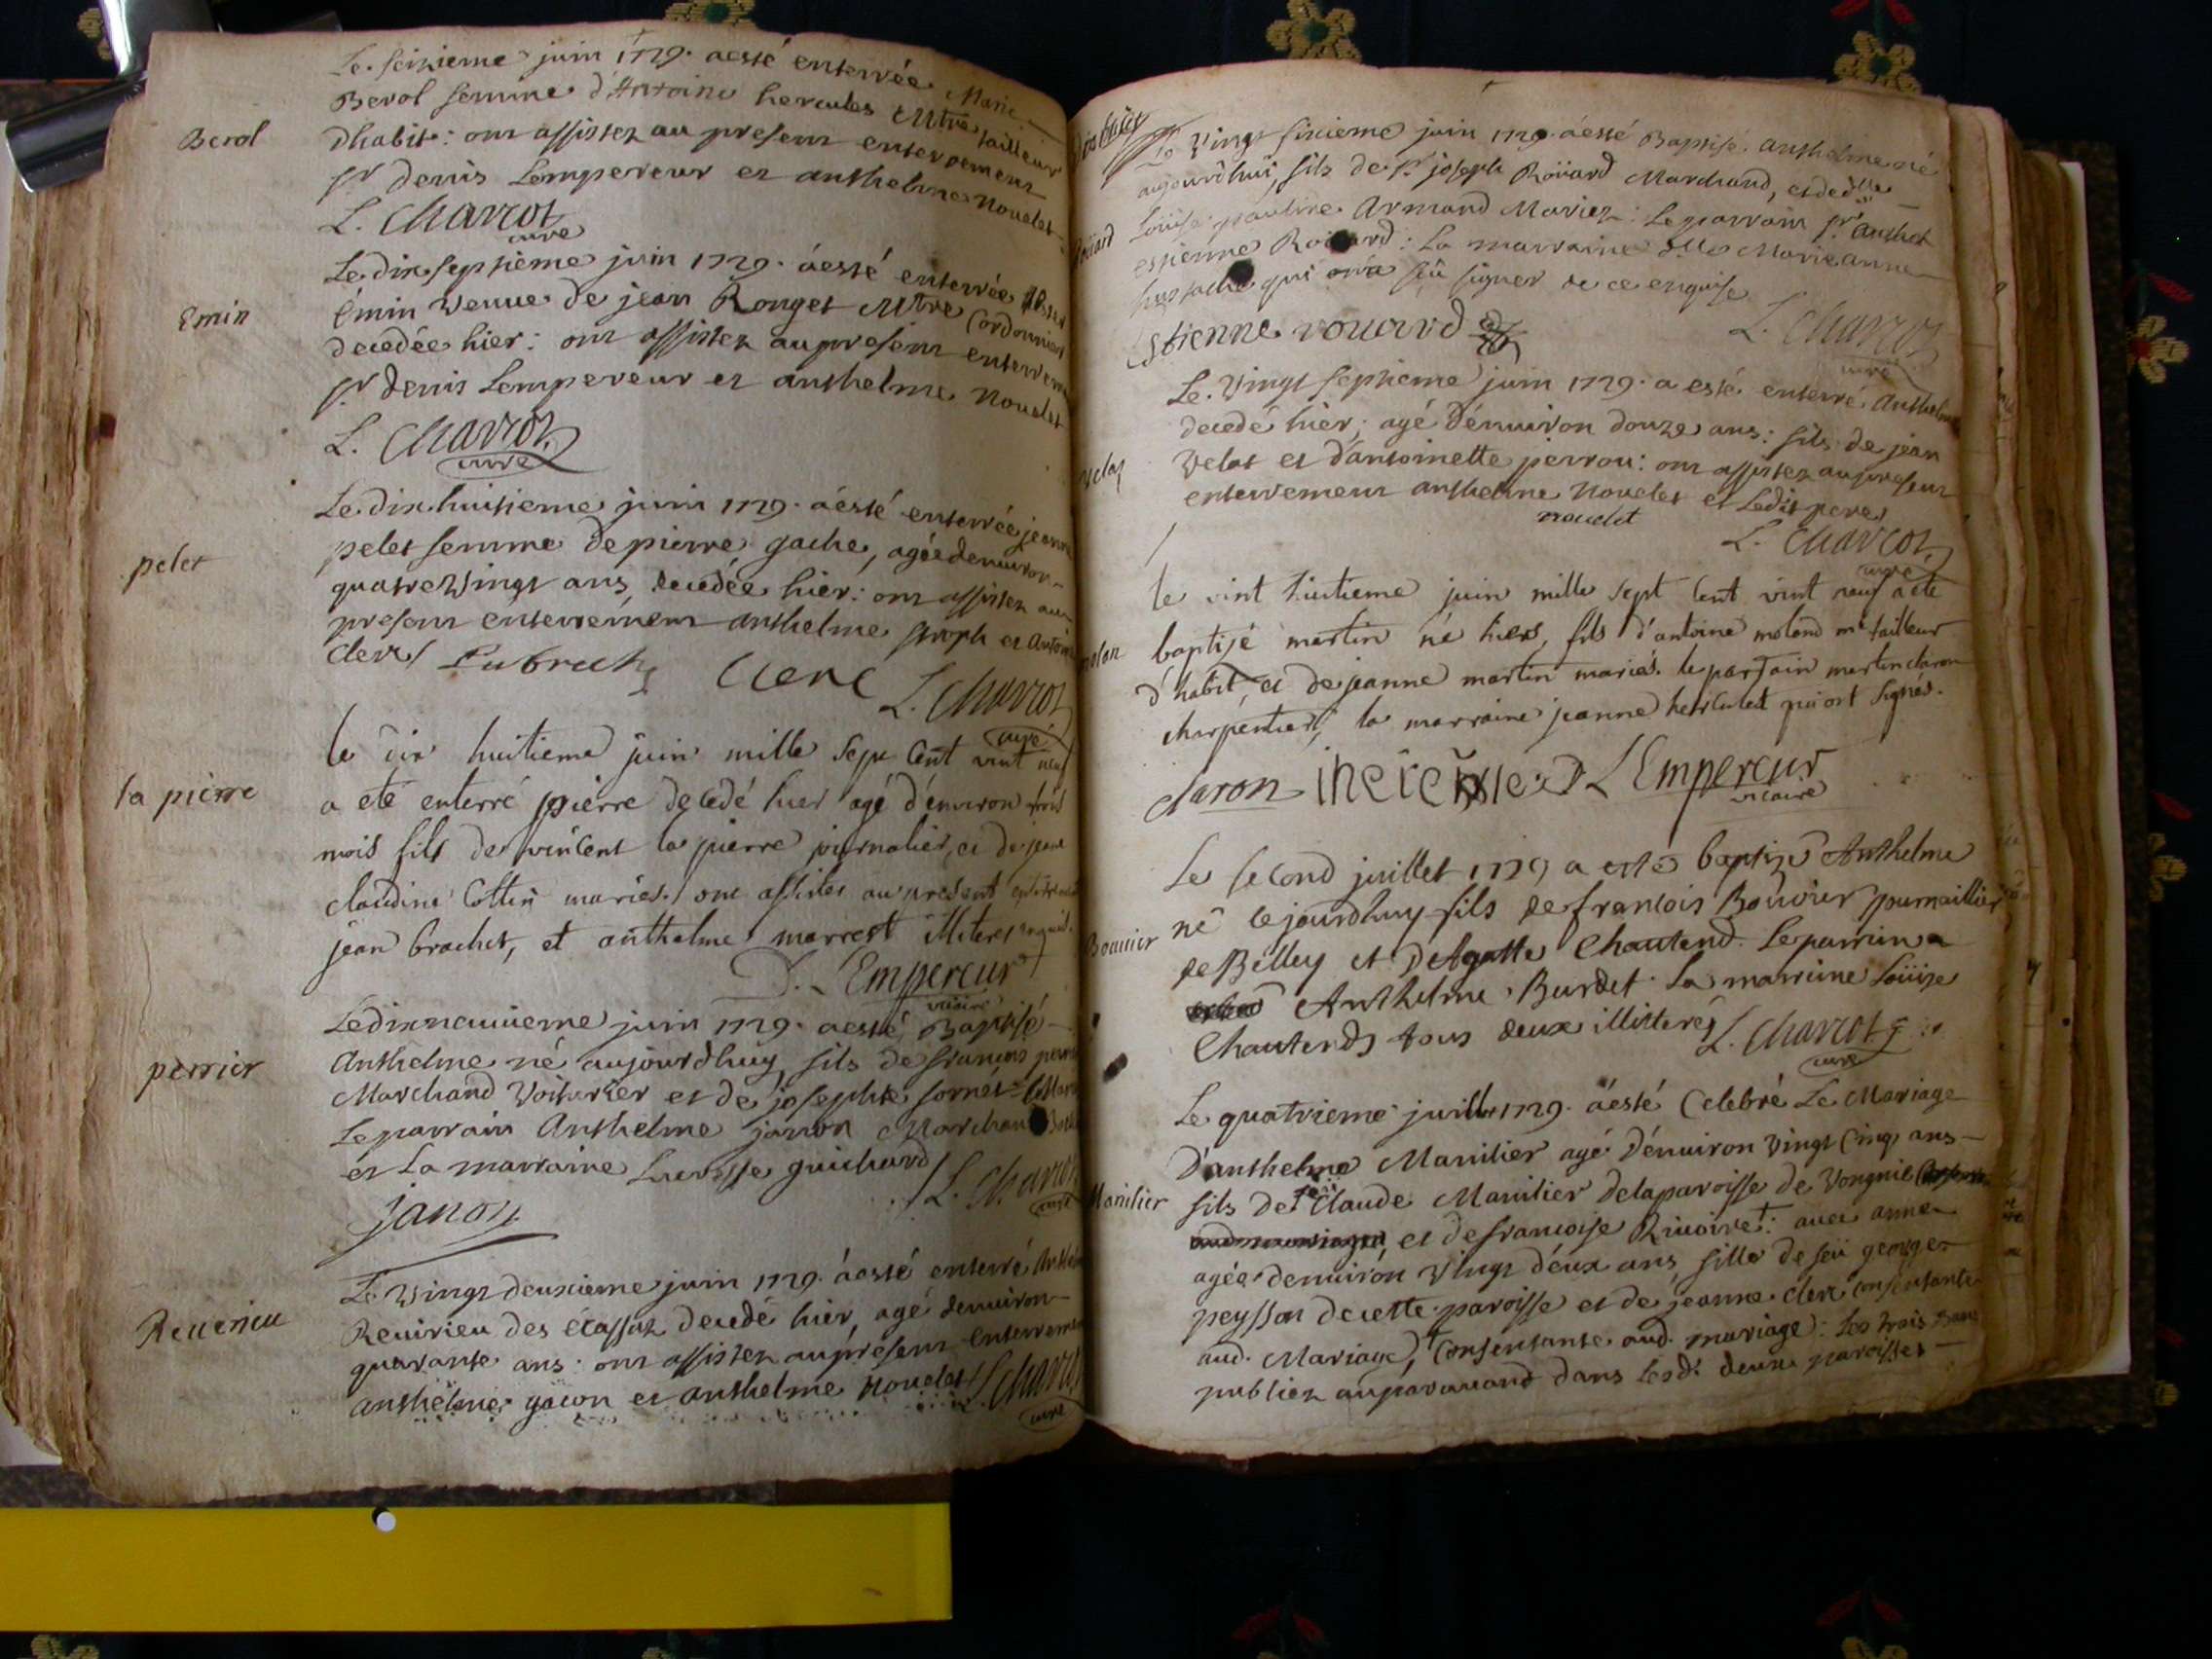 Le seizieme juin 1729. a esté enterrée Marie
Berol
Berol femme d'Antoine hercules Mtre tailleur
dhabit: ont assistez au present enterrement
sr denis Lempereur et anthelme Nouelet
L. Charcot
curé
Le dix septième juin 1729. a esté enterrée
Emin
Emin veuue de jean Rouget Mtre Cordonnier
decedée hier: ont assistez au present enterrem
sr denis Lempereur et anthelme Nouelet
L. Charcot
curé
Le dix huitieme juin 1729. a esté enterrée jeanne
pelet
pelet femme de pierre gache, agée denuiron
quatre Vingt ans, decedée hier: ont assistez au
present enterrement anthelme et Antoine
clerc
Clerc L. Charcot
curé
le dix huitieme juin mille sept Cent vint neuf
la pierre
a ete enterré pierre decedé hier agé d'enuiron trois
mois fils de vincent la pierre journalier, et de
claudine Cottin mariés. ont assistés au present
jean brachet, et anthelme marrest illiteres
D. L'Empereur
vicaire
Le dix neuuieme juin 1729. a esté Baptisé
perrier
Anthelme né aujourdhuy, fils de francois
Marchand Voiturier et de josephte
Le parrain Anthelme janon Marchand
et La marraine Lucresse guichard L. Charcot
curé
janon
Le Vingt deuxieme juin 1729. a esté enterré
Reuerieu
Reuirieu des écassaz decedé hier, agé denuiron
quarante ans: ont assistez au present enterrement
anthelme gacon et anthelme Nouelet L. Charcot
curé
Le Vingt sixieme juin 1729. a esté Baptisé anthelme né
aujourdhui, fils de sr joseph Roüard Marchand, et de dlle
Roüard
Loüise pauline Armand Mariez: Le parrain sr anthel
estienne Roüard: La marraine dlle Marie anne
qui n'a sçû signer de ce enquise
Estienne rouard L. Charcot
curé
Le Vingt septieme juin 1729. a esté enterré Anthelme
decedé hier, agé d'énuiron douze ans: fils de jean
Velat
Velat et d'antoinette perrou: ont assistez au present
enterrement anthelme Nouelet et Ledit pere
nouelet
L. Charcot
curé
le vint huitieme juin mille sept Cent vint neuf a ete
molan
baptisé martin né hier, fils d'antoine moland mr tailleur
d'habit, et de jeanne martin mariés. le parrain martin claron
charpentier, la marraine jeanne herculest qui ont signés.
claron L'Empereur
vicaire
Le second juillet 1729 a esté baptizé Anthelme
né cejourdhuy fils de francois Bouuier journaillier
Bouuier
de Belley et d'Agatte Chautend. Le parrin a
Anthelme Burdet. La marrine Loüize
Chautends tous deux illiterés L. Charcot
curé
Le quatrieme juillet 1729. a esté Celebré Le Mariage
D'anthelme Manilier agé d'énuiron vingt Cinq ans
Manilier
fils de Claude Manilier de la paroisse de Vongnie
et de francoise Riuoire: auec anne
agée denuiron Vingt deux ans, fille de feü george
peysson de cette paroisse et de jeanne clerc consentante
aud. Mariage, Consentante aud. mariage: Les trois Bans
publiez auparauand dans Lesd. deux paroisses